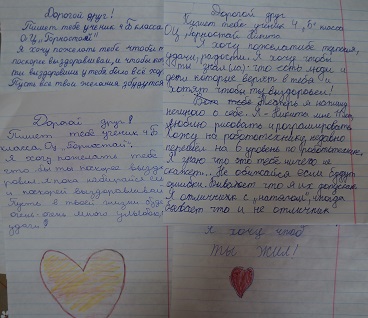 Дорогой друг!
Пишет тебе ученик 4Б класса
О.Ц. "Горностай".
Я хочу пожелать тебе чтобы ты
поскорее выздоравливал, и чтобы когда
ты выздоровишь у тебя было все хорошо
Пусть все твои желания сбудутся
Дорогой друг!
Пишет тебе ученик 4"Б"
класса ОЦ "Горностай".
Я хочу пожелать тебе
что бы ты поскорее выздо
ровил. А пока набирайся сил
и поскорей выздоравливай
Пусть в твоей жизни будет
очень-очень много улыбок и
удачи!
Дорогой друг
Пишет тебе ученик 4 "Б" класса
ОЦ Горностай Никита.
Я хочу пожелать здоровья,
удачи, радости. Я хочу чтобы
ты знал(ла) что есть люди и
дети которые верят в тебя и
хотят чтобы ты выздоровел!
теперь я напишу
немного о себе. Я - Никита мне 10 лет
люблю рисовать и программировать
Хожу на робототехнику, недавно
перешёл на 6 уровень по робототехнике,
Я знаю что это тебе ничего не
скажет. Не обижайся если будут
ошибки. Бывает что я их допускаю
Я отличник с "натягом", иногда
бывает что и не отличник
Я хочу чтоб
ТЫ ЖИЛ!